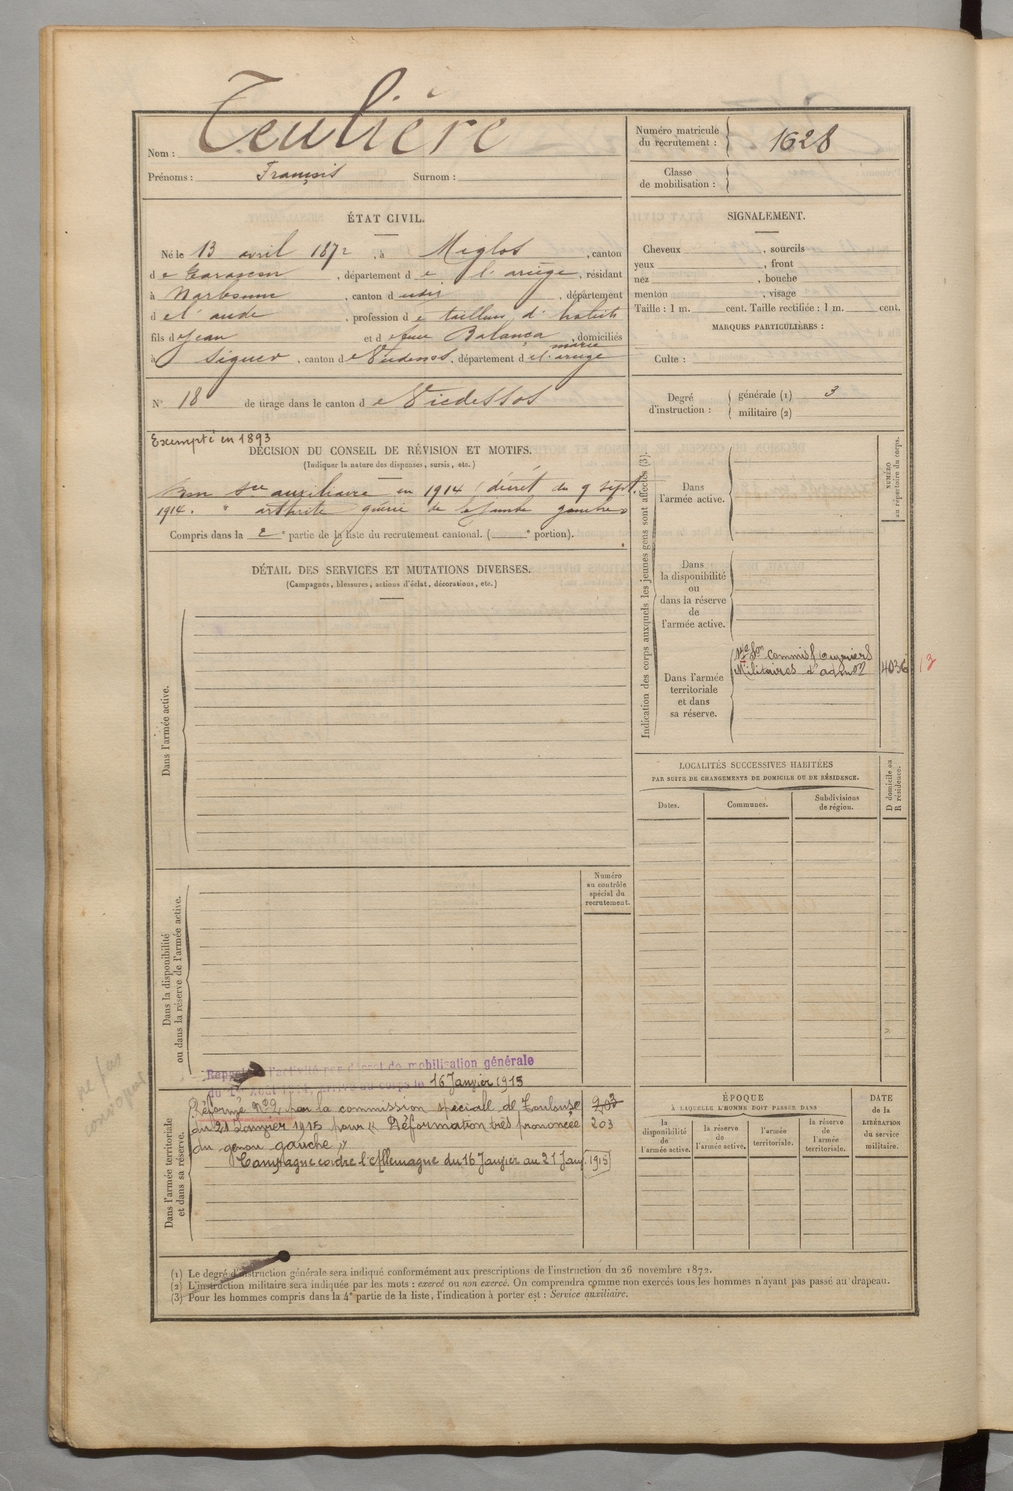 Nom : Teulière
Prénoms : François Surnom :
Numéro matricule du recrutement : 1628
Classe de mobilisation :
ÉTAT CIVIL.
Né le 13 avril 1872, à Miglos, canton
de Tarascon, département de l'ariège, résidant
à Narbonne, canton dudit, département
de l'aude, profession de tailleur d'habits
fils de Jean et de feue Balança marie, domiciliés
à Siguer, canton de Vicdessos, département de l'ariège
N° 18 de tirage dans le canton de Vicdessos
SIGNALEMENT.
Cheveux , sourcils
yeux , front
nez , bouche
menton , visage
Taille : 1 m. cent. Taille rectifiée : 1 m. cent.
MARQUES PARTICULIÈRES :
Culte :
Degré d'instruction : générale (1) 3
militaire (2)
Exempté en 1893
DÉCISION DU CONSEIL DE RÉVISION ET MOTIFS.
(Indiquer la nature des dispenses, sursis, etc.)
Bon sce auxiliaire en 1914 (décret du 9 sept.
1914. arthrite guérie de la jambe gauche
Compris dans la 2e partie de la liste du recrutement cantonal. ( e portion).
DÉTAIL DES SERVICES ET MUTATIONS DIVERSES.
(Campagnes, blessures, actions d'éclat, décorations, etc.)
Dans l'armée active.
Dans la disponibilité
ou dans la réserve de l'armée active.
Numéro
au contrôle
spécial du
recrutement.
de mobilisation générale
16 Janvier 1915
Dans l'armée territoriale
et dans sa réserve.
Réformé N°2 par la commission spéciale de Toulouse 203
du 21 Janvier 1915 pour « Déformation très prononcée 203
du genou gauche »
Campagne contre l'Allemagne du 16 Janvier au 21 Janv. 1915
ne pas
convoquer
Indication des corps auxquels les jeunes gens sont affectés (3).
NUMÉRO
au répertoire du corps.
Dans
l'armée active.
Dans
la disponibilité
ou
dans la réserve
de
l'armée active.
Dans l'armée
territoriale
et dans
sa réserve.
Son Commis Ouvriers
Militaires d'admon 4036 13
LOCALITÉS SUCCESSIVES HABITÉES
PAR SUITE DE CHANGEMENTS DE DOMICILE OU DE RÉSIDENCE.
Dates. Communes. Subdivisions de région.
D domicile ou
R résidence.
ÉPOQUE
À LAQUELLE L'HOMME DOIT PASSER DANS
la disponibilité de l'armée active.
la réserve de l'armée active.
l'armée territoriale.
la réserve de l'armée territoriale.
DATE
de la
LIBÉRATION
du service
militaire.
(1) Le degré d'instruction générale sera indiqué conformément aux prescriptions de l'instruction du 26 novembre 1872.
(2) L'instruction militaire sera indiquée par les mots : exercé ou non exercé. On comprendra comme non exercés tous les hommes n'ayant pas passé au drapeau.
(3) Pour les hommes compris dans la 4e partie de la liste, l'indication à porter est : Service auxiliaire.